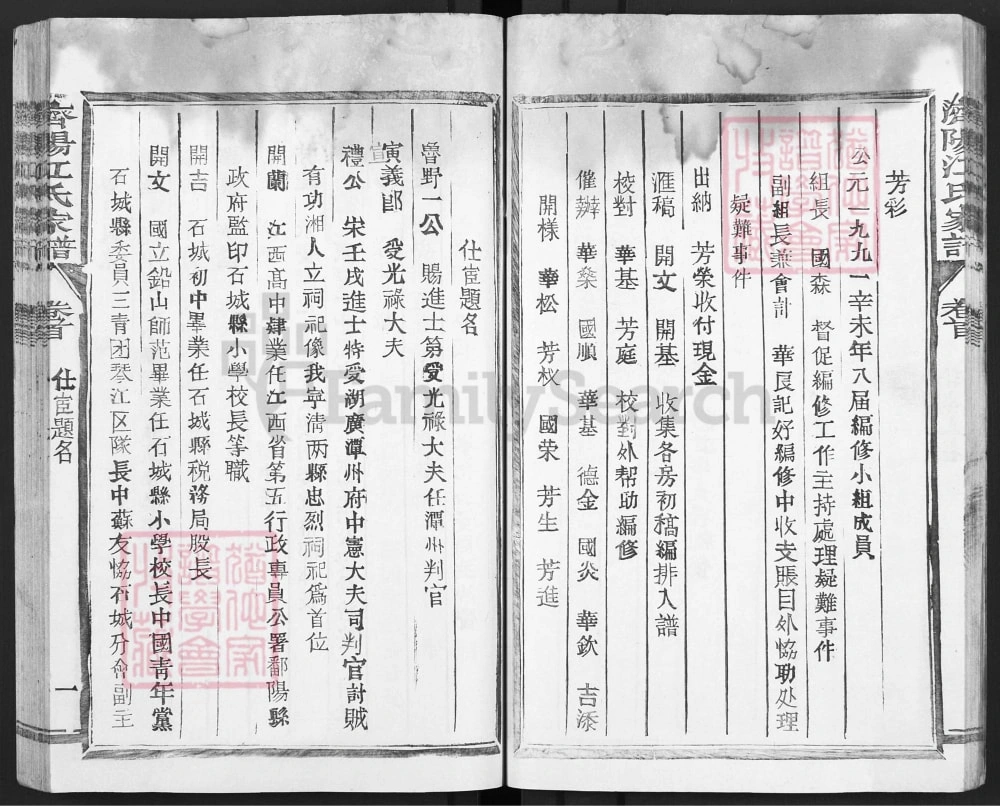 芳彩
公元一九九一辛未年八届編修小組成員
組長 國森 督促編修工作主持處理疑難事件
副組長兼會計 華良記好編修中收支賬目外恊助处理
疑難事件
出納 芳榮收付現金
滙稿 開文 開基 收集各房初稿編排入譜
校對 華基 芳庭 校對外帮助編修
催辦 華燊 國順 華基 德金 國炎 華欽 吉添
開樣 華松 芳权 國荣 芳生 芳進
仕宦題名
魯野一公 賜進士第受光祿大夫任潭州判官
寅義郎 受光祿大夫
禮公 宋壬戌進士特受湖廣潭州府中憲大夫司判官討賊
有功湘人立祠祀像我寧清两縣忠烈祠祀爲首位
開蘭 江西高中肄業任江西省第五行政專員公署鄱陽縣
政府監印石城縣小學校長等職
開吉 石城初中畢業任石城縣税務局股長
開文 國立鉛山師范畢業任石城縣小學校長中國青年黨
石城縣委員三青团琴江区隊長中蘇友恊石城分會副主
濟陽江氏家譜
卷首
仕宦題名
一
濟陽江氏家譜
卷首
FamilySearch